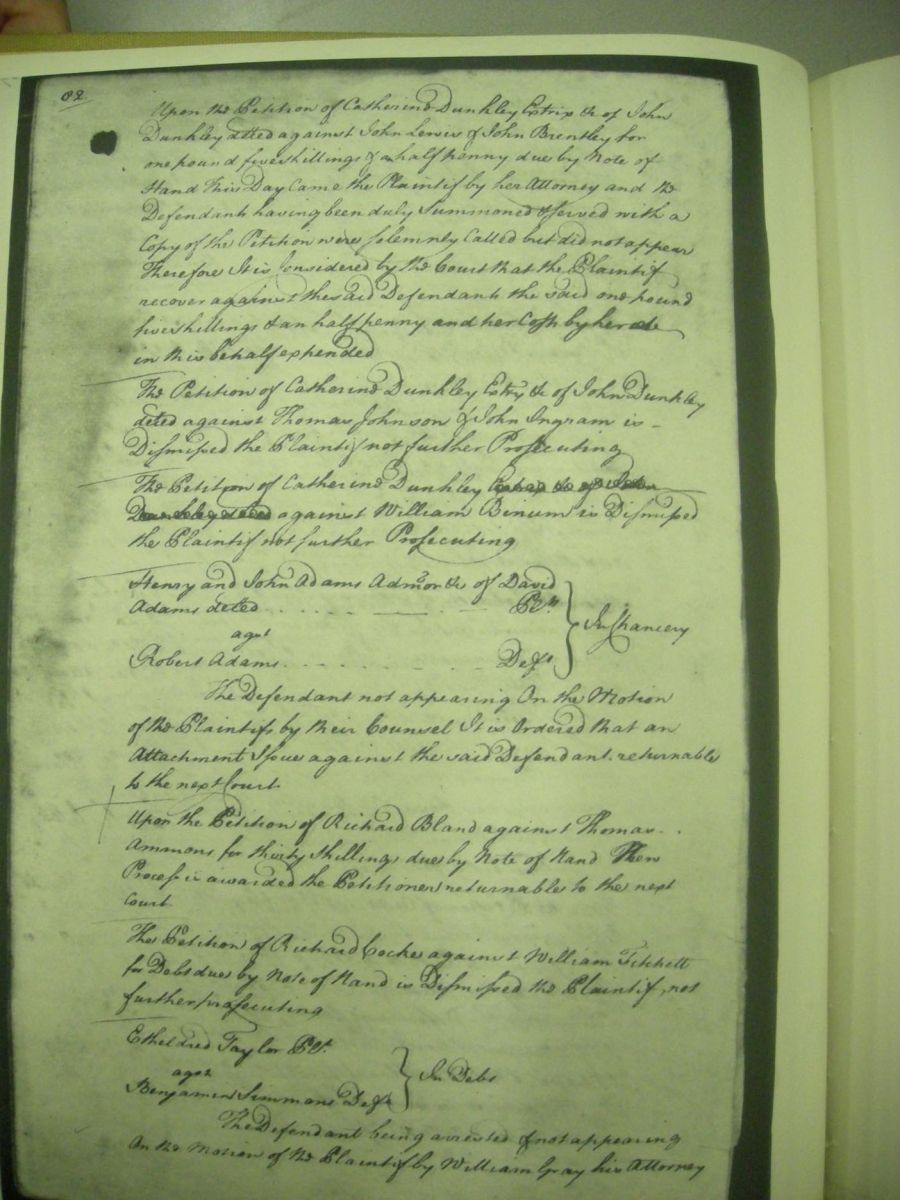 82
Upon the Petition of Catherine Dunkley Extrix &c of John
Dunkley deced against John Lewis & John Brently for
one pound five shillings & a half penny due by Note of
Hand This Day Came the Plaintif by her Attorney and the
Defendants having been duly Summoned & served with a
Copy of the Petition were solemnly Called but did not appear
Therefore It is Considered by the Court that the Plaintif
recover against the said Defendants the said one pound
five shillings & an half penny and her Costs by her
in this behalf expended
The Petition of Catherine Dunkley Extrx &c of John Dunkley
deced against Thomas Johnson & John Ingram is
Dismissed the Plaintif not further Prosecuting
The Petition of Catherine Dunkley
against William Binum is Dismissed
the Plaintif not further Prosecuting
Henry and John Adams Admors &c of David
Adams deced Plts
agst
Robert Adams Deft
In Chancery
The Defendant not appearing On the Motion
of the Plaintifs by their Counsel It is Ordered that an
Attachment Issue against the said Defendant returnable
to the next Court
Upon the Petition of Richard Bland against Thomas
Ammons for thirty Shillings due by Note of Hand New
Process is awarded the Petitioner returnable to the next
Court
The Petition of Richard Cocke against William Tikkett
for Debt due by Note of Hand is Dismissed the Plaintif not
further prosecuting
Etheldred Taylor Plt
agst
Benjamin Simmons Deft
In Debt
The Defendant being arrested & not appearing
On the Motion of the Plaintif by William Gray his Attorney